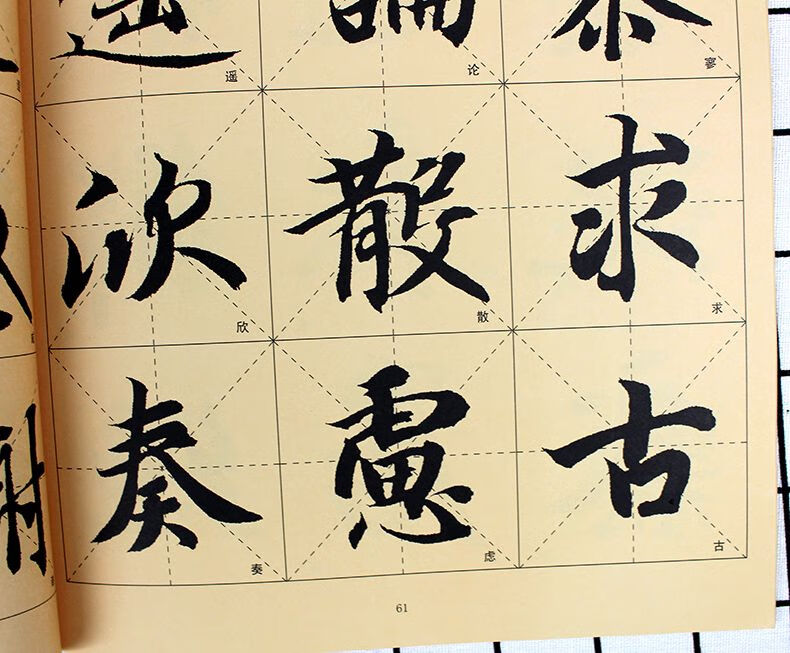 寥 寥
求 求
古 古
論 论
散 散
慮 虑
遥 遥
欣 欣
奏 奏
61